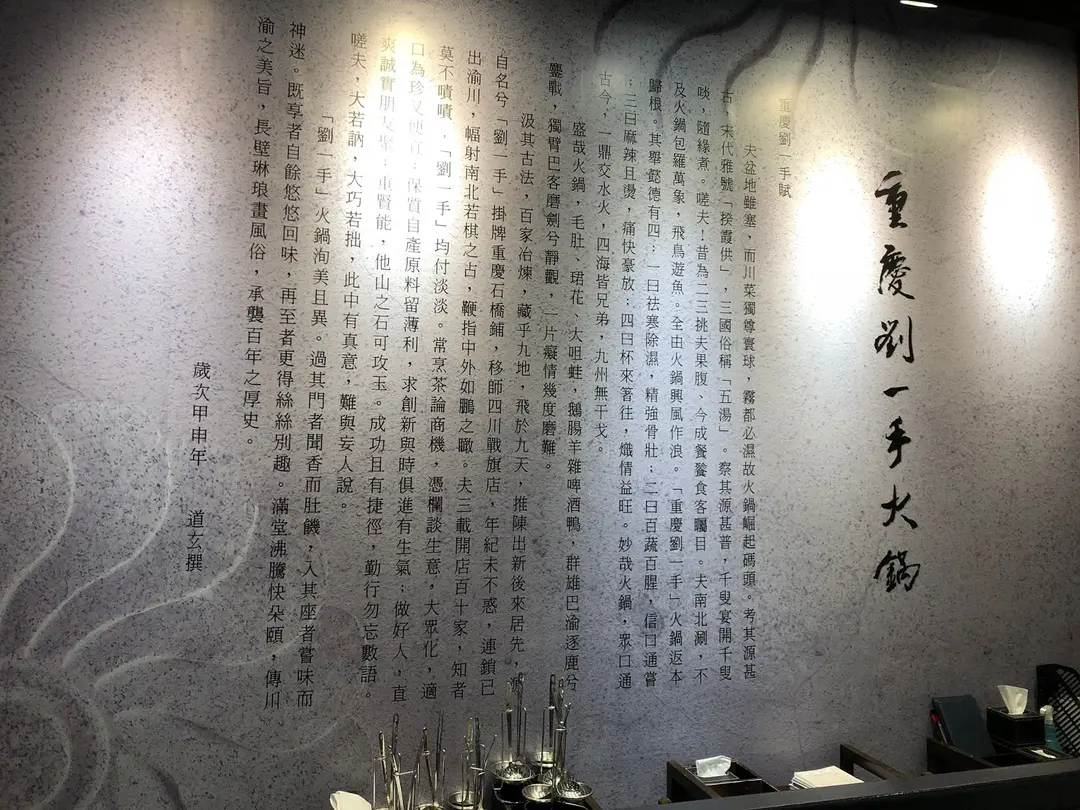 重慶劉一手火鍋
重慶劉一手賦
夫盆地雖塞，而川菜獨尊寰球，霧都必濕故火鍋崛起碼頭。考其源甚
古，宋代雅號「揆霞供」，三國俗稱「五湯」。察其源甚普，千叟宴開千叟
啖，隨緣煮。嗟夫！昔為二三挑夫果腹、今成餐饕食客矚目。夫南北涮，不
及火鍋包羅萬象，飛鳥遊魚。全由火鍋興風作浪。「重慶劉一手」火鍋返本
歸根。其舉懿德有四：一曰祛寒除濕，精強骨壯；二曰百蔬百腥，信口通嘗
；三曰麻辣且燙，痛快豪放；四曰杯來箸往，熾情益旺。妙哉火鍋，眾口通
古今，一鼎交水火，四海皆兄弟，九州無干戈。
盛哉火鍋，毛肚、珺花、大咀蛙，鵝腸羊雜啤酒鴨，群雄巴渝逐鹿兮
鏖戰，獨臂巴客磨劍兮靜觀，一片癡情幾度磨難。
汲其古法，百家冶煉，藏乎九地，飛於九天，推陳出新後來居先，
自名兮「劉一手」掛牌重慶石橋鋪，移師四川戰旗店，年紀未不惑，連鎖已
出渝川，幅射南北若棋之占，鞭指中外如鵬之瞰。夫三載開店百十家，知者
莫不嘖嘖，「劉一手」均付淡淡。常烹茶論商機，憑欄談生意，大眾化，適
口為珍又便宜；保質自產原料留薄利，求創新與時俱進有生氣；做好人，直
爽誠實朋友聚；重賢能，他山之石可攻玉。成功且有捷徑，勤行勿忘數語。
嗟夫，大若訥，大巧若拙，此中有真意，難與妄人說。
「劉一手」火鍋洵美且異。過其門者聞香而肚饑，入其座者嘗味而
神迷。既享者自餘悠悠回味，再至者更得絲絲別趣。滿堂沸騰快朵頤，傳川
渝之美旨，長壁琳琅畫風俗，承襲百年之厚史。
歲次甲申年　道玄撰